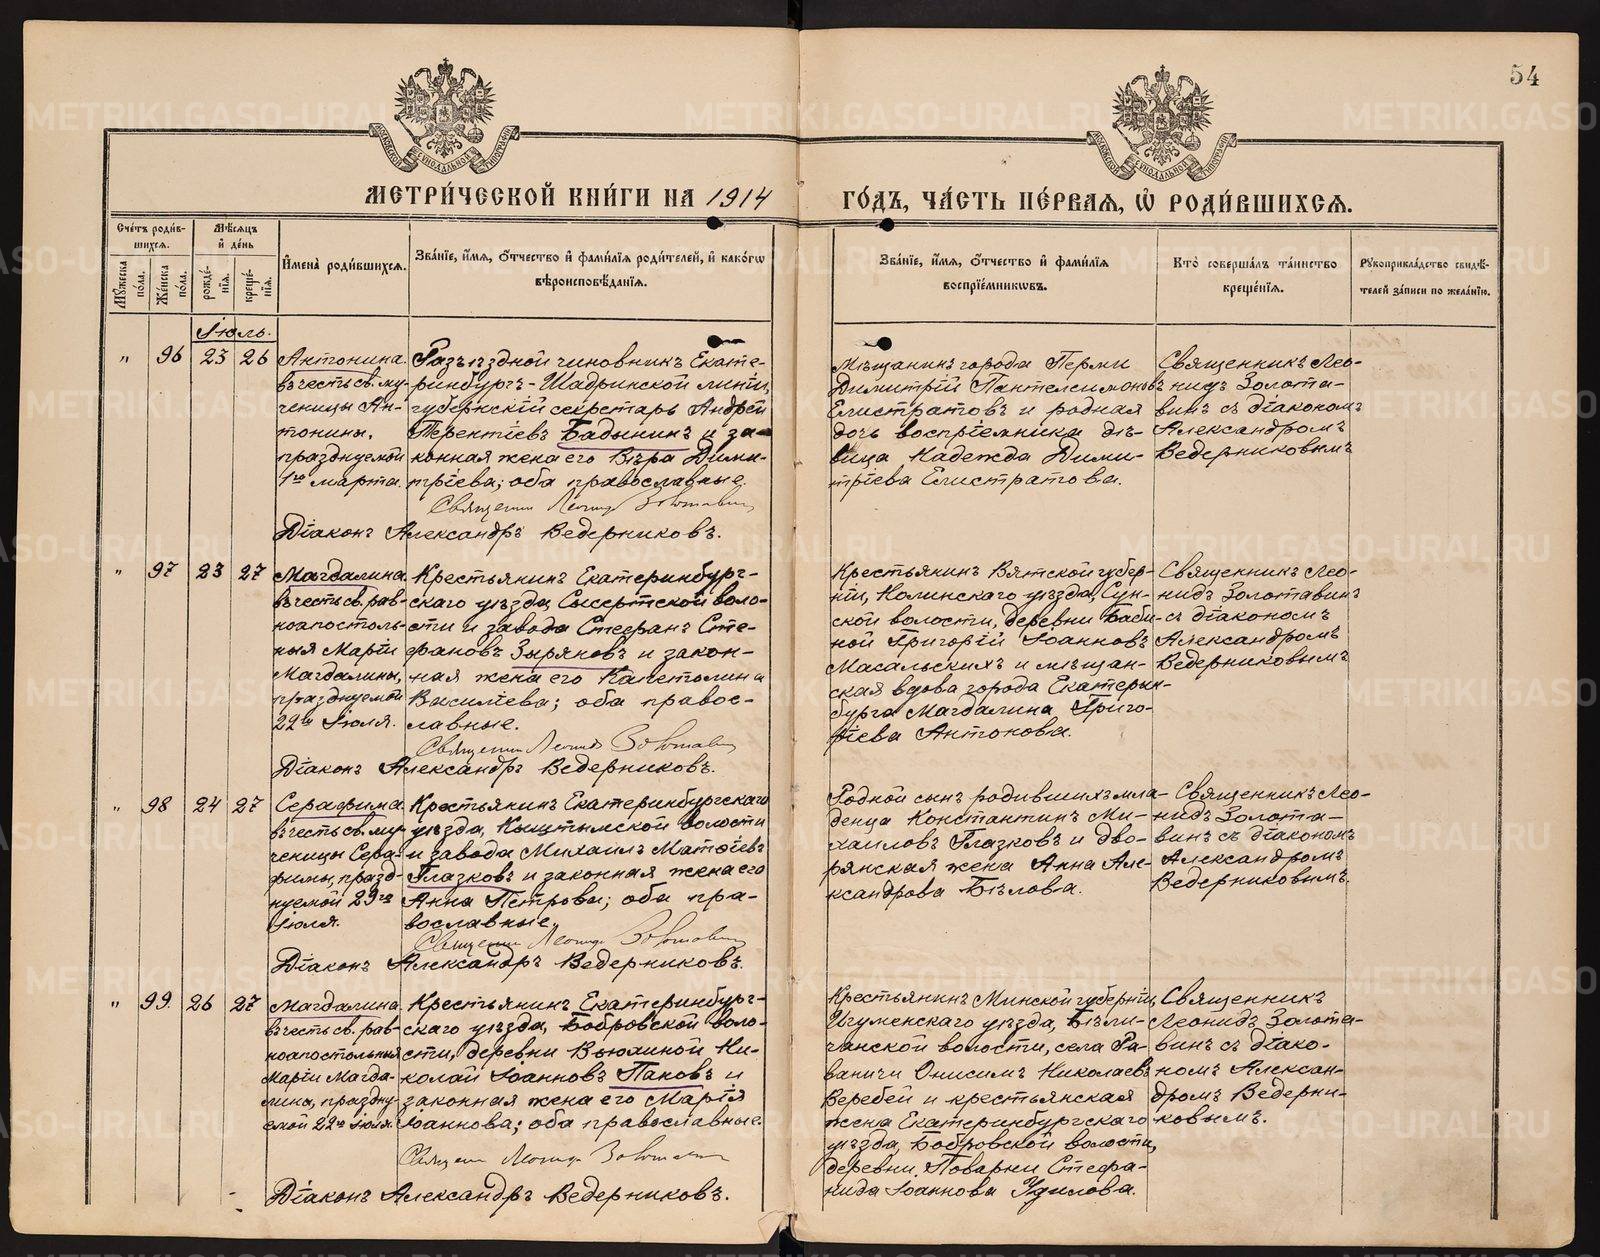 54
МЕТРИ́ЧЕСКОЙ КНИ́ГИ НА 1914 ГО́ДЪ, ЧА́СТЬ ПЕ́РВАѦ, Ѡ РОДИ́ВШИХСѦ.
Сче́тъ роди́в-
шихсѧ.
Мꙋ́жеска по́ла.
Же́нска по́ла.
Мѣ́сѧцъ и де́нь
рожде́-
нїѧ.
креще́-
нїѧ.
Имена̀ роди́вшихсѧ.
Зва́нїе, и́мѧ, о́тчество и фами́лїѧ роди́телей, и како́гѡ
вѣроисповѣ́данїѧ.
Зва́нїе, и́мѧ, о́тчество и фами́лїѧ
воспрїе́мникѡвъ.
Кто̀ соверша́лъ та́инство
креще́нїѧ.
Рꙋкоприкла́дство свидѣ́-
телей за́писи по жела́нїю.
Іюль.
" 96 23 26
Антонина.
въ честь св. му-
ченицы Ан-
тонины,
празднуемой
1го марта.
Разъѣздной чиновникъ Екате-
ринбургъ-Шадринской линіи,
губернскій секретарь Андрей
Терентіевъ Бадынинъ и за-
конная жена его Вѣра Дими-
тріева; оба православные.
Священникъ Леонидъ Золотавинъ
Діаконъ Александръ Ведерниковъ.
Мѣщанинъ города Перми
Димитрій Пантелеимоновъ
Елистратовъ и родная
дочь воспріемника дѣ-
вица Надежда Дими-
тріева Елистратова.
Священникъ Лео-
нидъ Золота-
винъ съ діакономъ
Александромъ
Ведерниковымъ
" 97 23 27
Магдалина.
въ честь св. рав-
ноапостоль-
ныя Маріи
Магдалины,
празднуемой
22го Іюля.
Крестьянинъ Екатеринбург-
скаго уѣзда, Сысертской воло-
сти и завода Стефанъ Сте-
фановъ Зыряновъ и закон-
ная жена его Капетолина
Василіева; оба правос-
лавные.
Священникъ Леонидъ Золотавинъ
Діаконъ Александръ Ведерниковъ.
Крестьянинъ Вятской губер-
ніи, Нолинскаго уѣзда, Сун-
ской волости, деревни Баби-
ной Григорій Іоанновъ
Масальскихъ и мѣщан-
ская вдова города Екатерин-
бурга Магдалина Григо-
ріева Антонова.
Священникъ Лео-
нидъ Золотавинъ
съ діакономъ
Александромъ
Ведерниковымъ
" 98 24 27
Серафима
въ честь св. му-
ченицы Сера-
фимы, празд-
нуемой 29го
Іюля.
Крестьянинъ Екатеринбургскаго
уѣзда, Кыштымской волости
и завода Михаилъ Матѳіевъ
Глазковъ и законная жена его
Анна Петрова; оба пра-
вославные.
Священникъ Леонидъ Золотавинъ
Діаконъ Александръ Ведерниковъ.
Родной сынъ родившихъ мла-
денца Константинъ Ми-
хаиловъ Глазковъ и дво-
рянская жена Анна Але-
ксандрова Бѣлова.
Священникъ Лео-
нидъ Золота-
винъ съ діакономъ
Александромъ
Ведерниковымъ.
" 99. 26 27
Магдалина.
въ честь св. рав-
ноапостольныя
Маріи Магда-
лины, праздну-
емой 22го Іюля.
Крестьянинъ Екатеринбург-
скаго уѣзда, Бобровской воло-
сти, деревни Вьюхиной Ни-
колай Іоанновъ Пановъ и
законная жена его Марія
Іоаннова; оба православные.
Священникъ Леонидъ Золотавинъ
Діаконъ Александръ Ведерниковъ.
Крестьянинъ Минской губерніи,
Игуменскаго уѣзда, Бѣли-
чанской волости, села Ра-
ваничи Онисимъ Николаевъ
Веребей и крестьянская
жена Екатеринбургскаго
уѣзда, Бобровской волости,
деревни Поварни Стефа-
нида Іоаннова Удилова.
Священникъ
Леонидъ Золота-
винъ съ діако-
номъ Алексан-
дромъ Ведерни-
ковымъ.